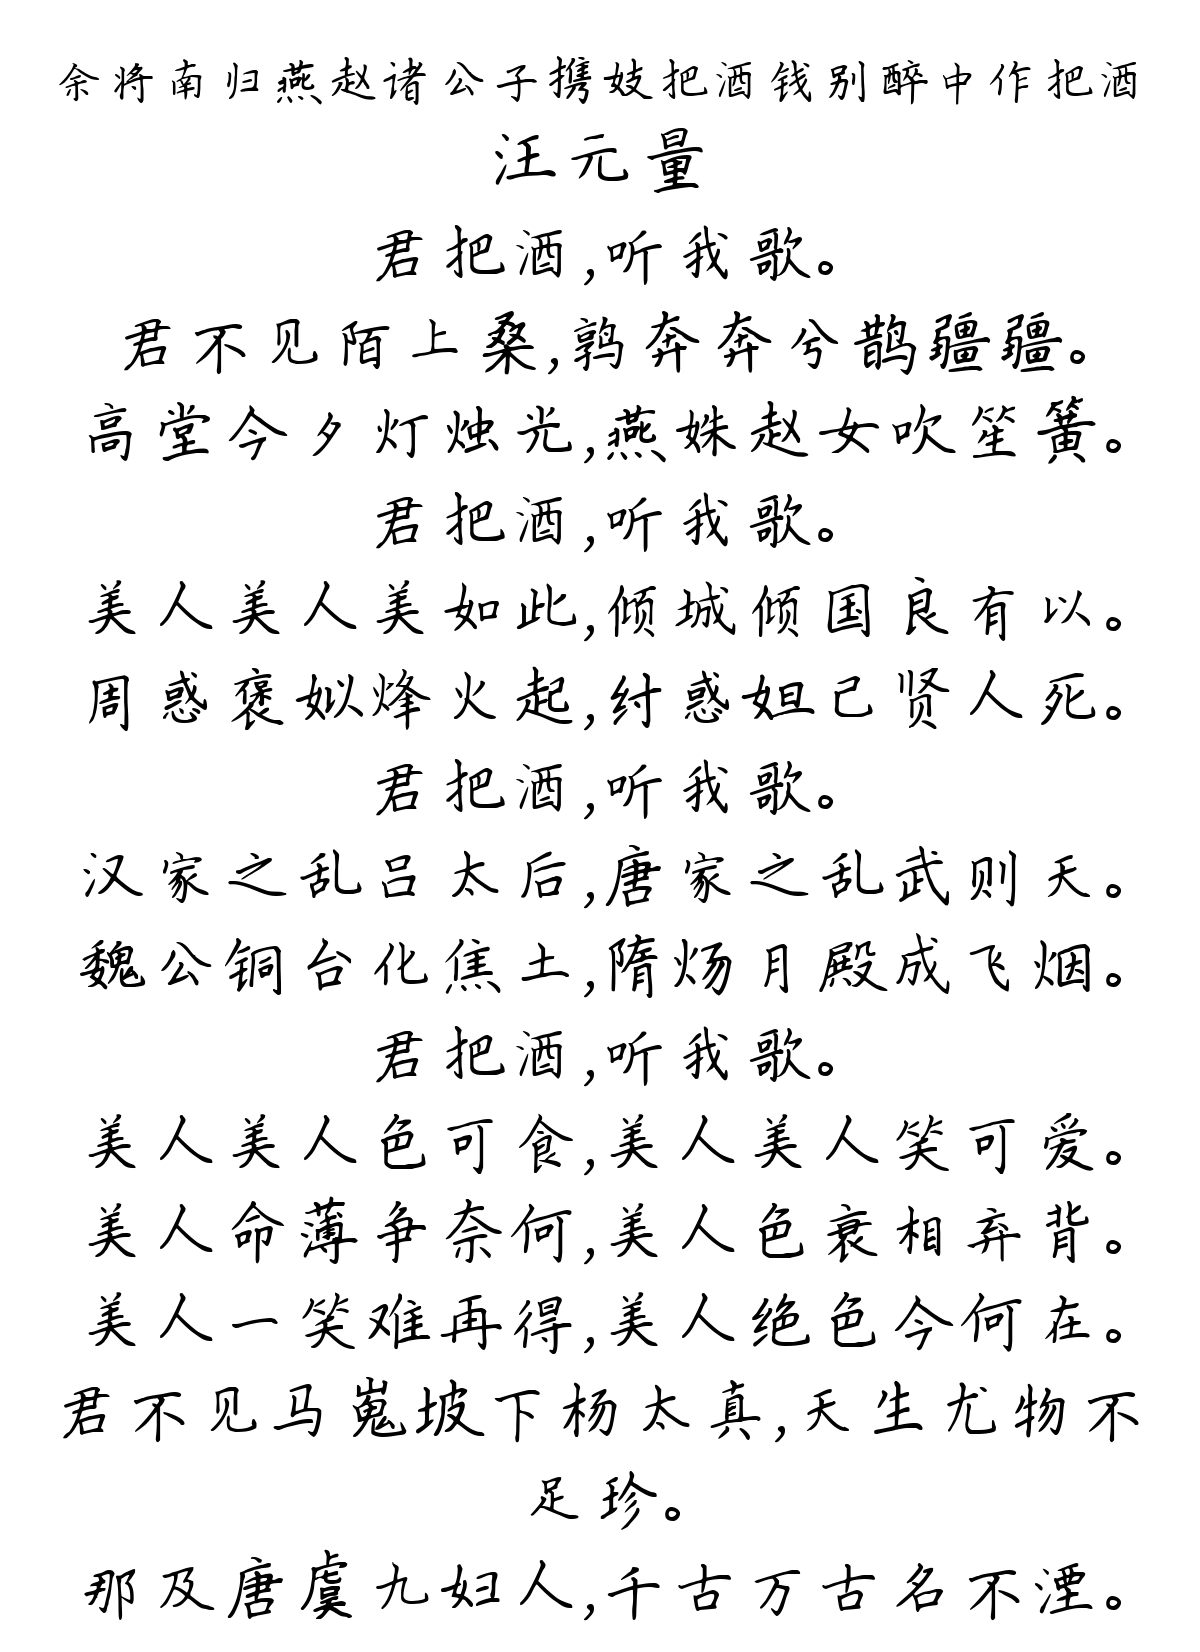 余将南归燕赵诸公子携妓把酒钱别醉中作把酒
汪元量
君把酒,听我歌。
君不见陌上桑,鹑奔奔兮鹊疆疆。
高堂今夕灯烛光,燕姝赵女吹笙簧。
君把酒,听我歌。
美人美人美如此,倾城倾国良有以。
周惑褒姒烽火起,纣惑妲己贤人死。
君把酒,听我歌。
汉家之乱吕太后,唐家之乱武则天。
魏公铜台化焦土,隋炀月殿成飞烟。
君把酒,听我歌。
美人美人色可食,美人美人笑可爱。
美人命薄争奈何,美人色衰相弃背。
美人一笑难再得,美人绝色今何在。
君不见马嵬坡下杨太真,天生尤物不
足珍。
那及唐虞九妇人,千古万古名不湮。